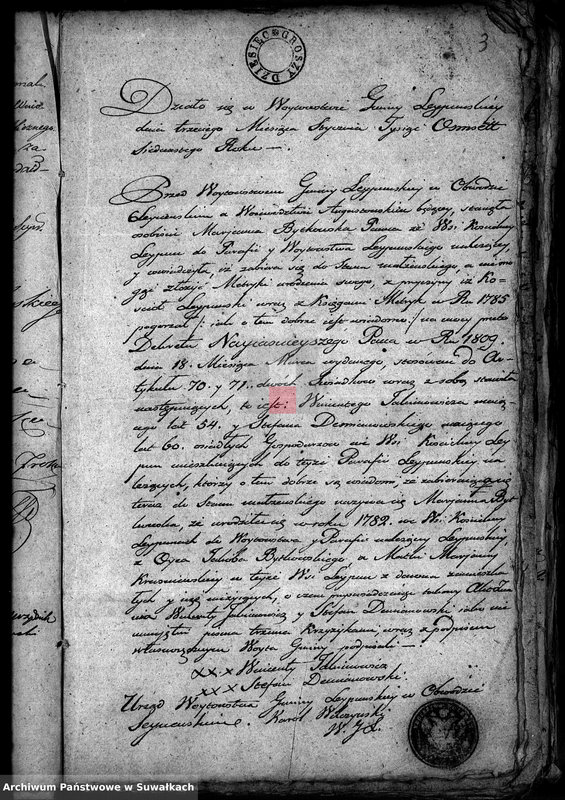 DZIESIĘC GROSZY
3
Działo się w Woytostwie Gminy Leypunskiey
dnia trzeciego Miesiąca Stycznia Tysiąc Osmset
siedmnastego Roku —.
Przed Woytostwem Gminy Leypunskiey w Obwodzie
Seynenskim a Woiewództwie Augustowskim będący, stanęła
osobiście Maryanna Bytkowska Panna ze Wsi Kościelny
Leypun do Parafii y Woytostwa Leypunskiego należący,
y oświadczyła, iż zabiera się do Stanu małżeńskiego, a nie mo-
gąc złożyć Metryki urodzenia swego, z przyczyny iż Ko-
ścioł Leypunski wraz z Księgami Metryk w Ru 1785
pogorzał /: iako o tem dobrze iest wiadomo :/ na mocy przeto
Dekretu Nayiasnieyszego Pana w Ru 1809.
dnia 18. Miesiąca Marca wydanego, stosownie do Ar-
tykułu 70. y 71. dwoch Swiadkow wraz z sobą stawiła
następuiących, to iest: Wincentego Talmowicza maią-
cego lat 54. y Stefana Demianowskiego maiącego
lat 60. osiadłych Gospodarzow we Wsi Kościelny Ley-
pun mieszkaiących do teyże Parafii Leypunskiey na-
leżących, ktorzy o tem dobrze są wiadomi, że zabieraiąca się
teraz do Stanu małżeńskiego nazywa się Maryanna Byt-
kowska, że urodziła się w roku 1782. we Wsi Kościelny
Leypunach do Woytostwa y Parafii należący Leypunskiey,
z Oyca Jakoba Bytkowskiego a Matki Maryanny
w teyże Wsi Leypun z dawna zamieszka-
łych y iuż nieżyiących, o czem
Wincenty Talmowicz y Stefan Demianowski iako nie
umieiętni pisma trzema Krzyżykami wraz z podpisem
własnoręcznym Woyta Gminy podpisali —.
××× Wincenty Talmowicz
××× Stefan Demianowski.
Urząd Woytostwa Gminy Leypunskiey w Obwodzie
Seynenskim. Karol Wilczynski
W. G.
Archiwum Państwowe w Suwałkach